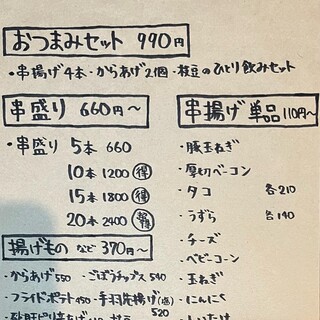 おつまみセット 990円
・串揚げ4本・からあげ2個・枝豆のひとり飲みセット
串盛り 660円～
・串盛り 5本 660
10本 1200 得
15本 1800 得
20本 2400
揚げもの など 370円～
・からあげ 550 ・ごぼうチップス 540
・フライドポテト 450 ・手羽先揚げ(塩) 520
串揚げ 単品 110円～
・豚玉ねぎ
・厚切ベーコン
・タコ 各210
・うずら 各140
・チーズ
・ベビーコーン
・玉ねぎ
・にんにく
・しいたけ